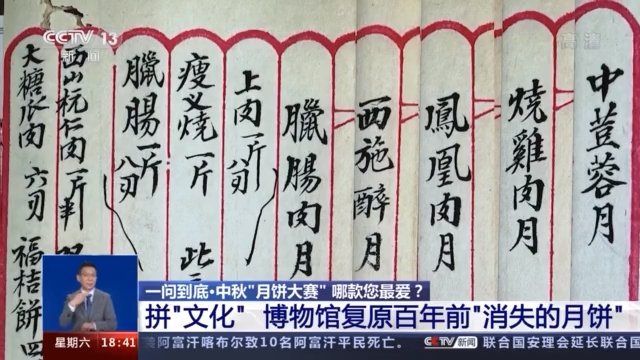 CCTV 13
新闻
高清
中荳蓉月
燒雞肉月
鳳凰肉月
西施醉月
臘腸肉月
上肉一斤八刃
瘦义燒一斤 此
臘腸一斤八刃
西山杬仁肉一斤半
大糖瓜肉 六刃 福桔餅四
一问到底·中秋"月饼大赛" 哪款您最爱？
拼"文化" 博物馆复原百年前"消失的月饼"
星期六 18:41
阿富汗喀布尔致10名阿富汗平民死亡。 CCTV新闻 联合国安理会延长联合国